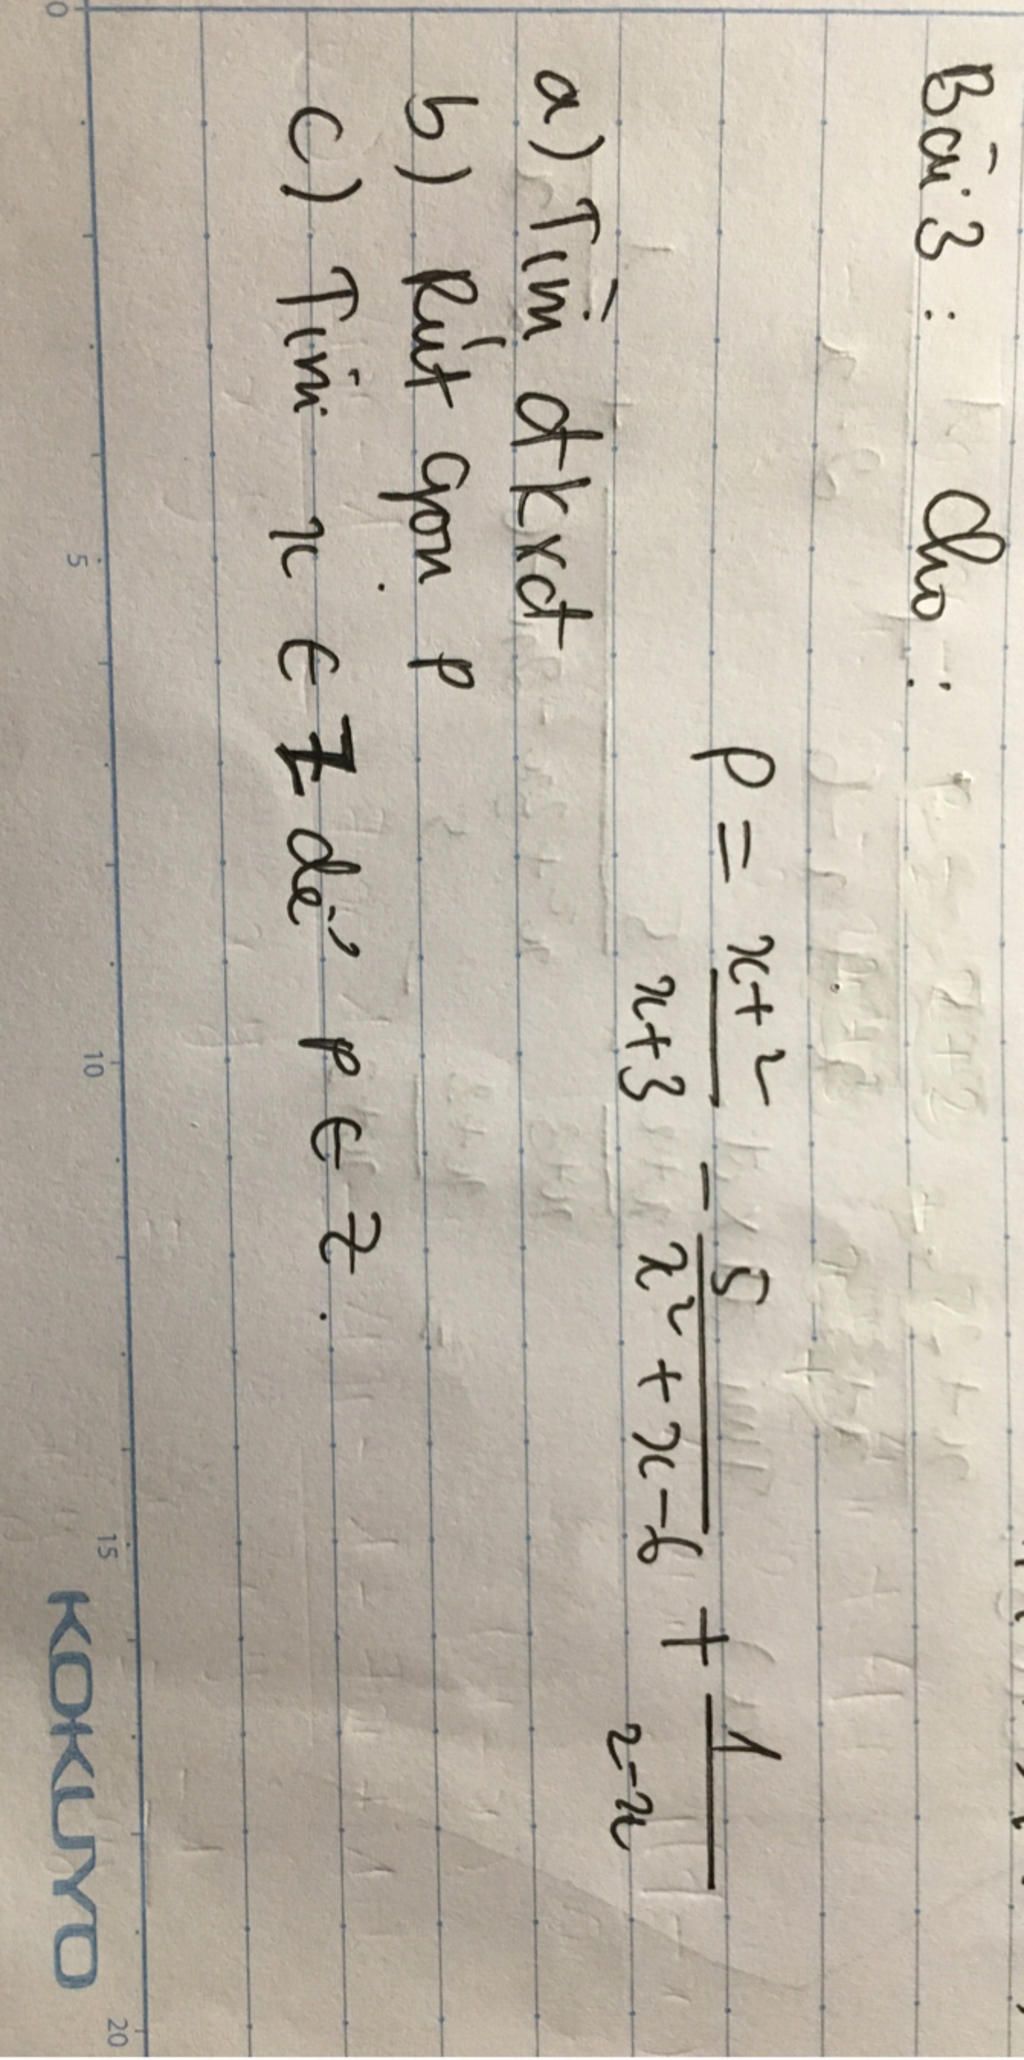 Bài 3 : Cho :
P = \frac{x+2}{x+3} - \frac{5}{x²+x-6} + \frac{1}{2-x}
a) Tìm đkxđ
b) Rút gọn P
c) Tìm x ∈ Z để P ∈ Z.
0 5 10 15 20
KOKUYO